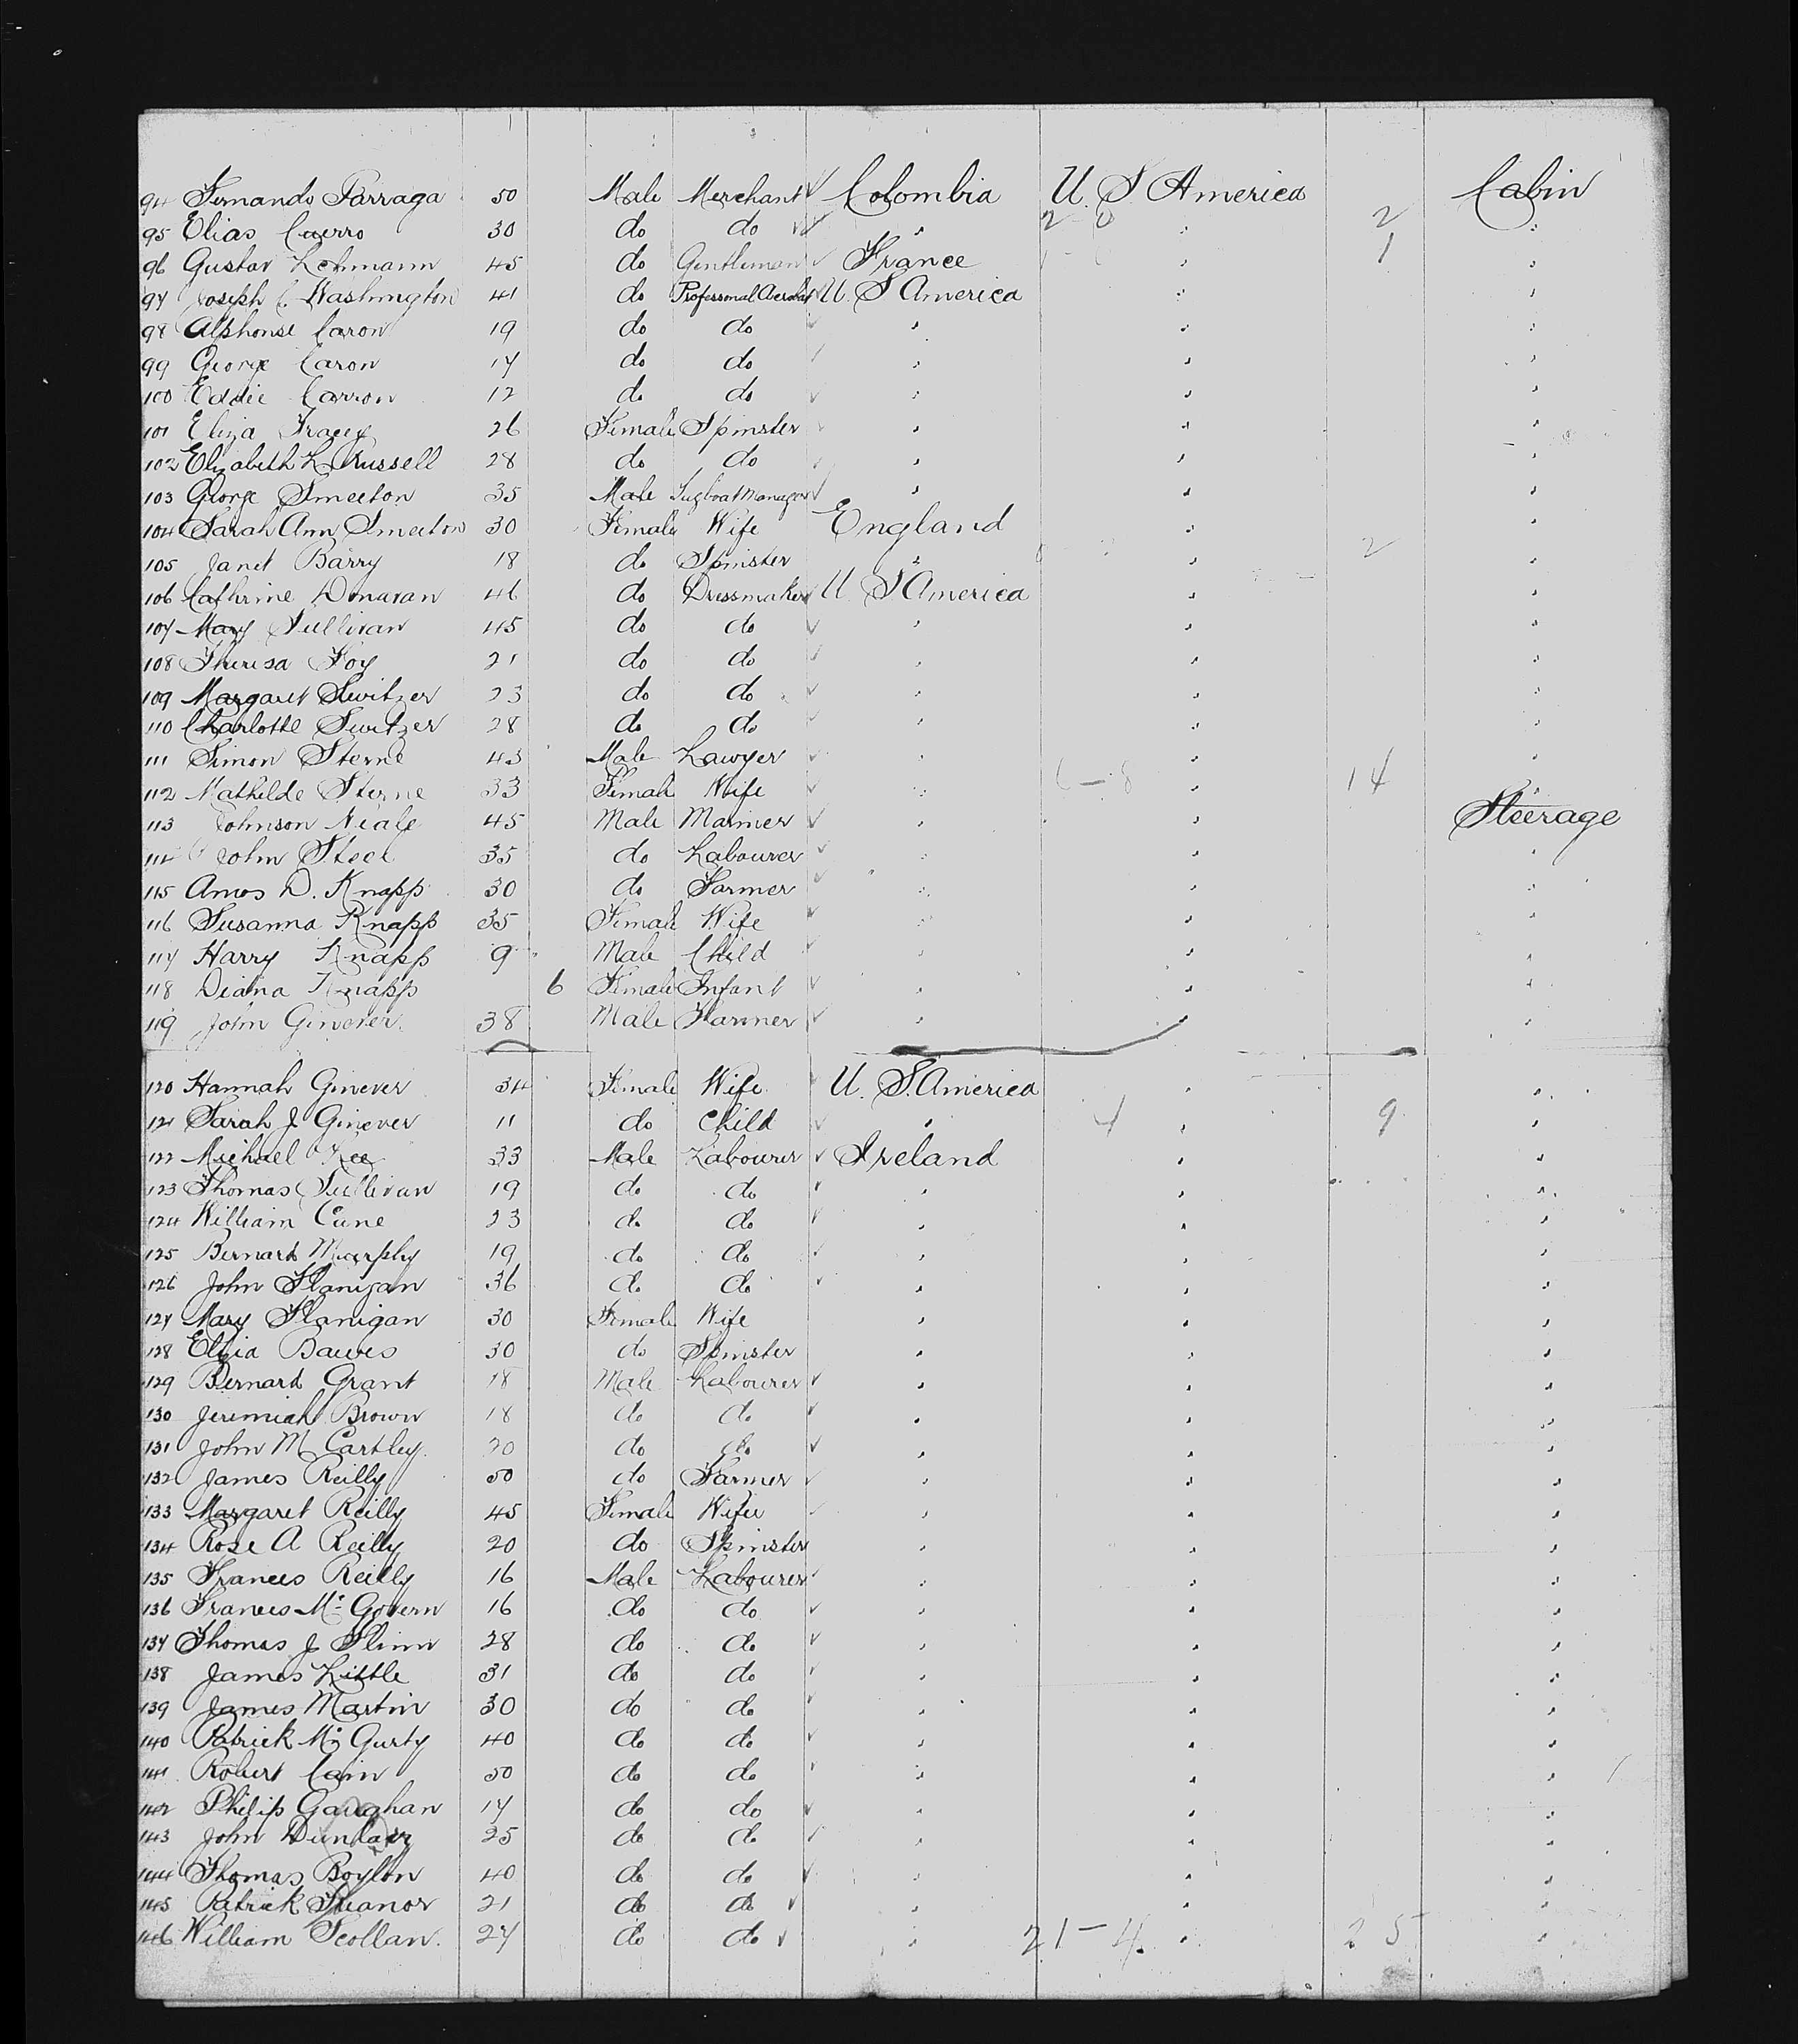 94 Fernando Parraga 50 Male Merchant Colombia U. S America Cabin
95 Elias Caerro 30 do do " 2-0 " 2 "
96 Gustav Lehmann 45 do Gentleman France " 1 "
97 Joseph C. Washington 41 do Professional Acrobat U. S America " "
98 Alphonse Caron 19 do do " " "
99 George Caron 17 do do " " "
100 Eddie Carron 12 do do " " "
101 Eliza Tracey 26 Female Spinster " " "
102 Elizabeth L. Russell 28 do do " " "
103 George Smeeton 35 Male Tugboat Manager " " "
104 Sarah Ann Smeeton 30 Female Wife England " "
105 Janet Barry 18 do Spinster " " 2 "
106 Cathrine Donavan 46 do Dressmaker U. S America " "
107 Mary Sullivan 45 do do " " "
108 Theresa Foy 21 do do " " "
109 Margaret Switzer 23 do do " " "
110 Charlotte Switzer 28 do do " " "
111 Simon Sterne 43 Male Lawyer " " "
112 Mathilde Sterne 33 Female Wife " 6-8 " 14 "
113 Johnson Neale 45 Male Mariner " " Steerage
114 John Steel 35 do Labourer " " "
115 Amos D. Knapp 30 do Farmer " " "
116 Susanna Knapp 35 Female Wife " " "
117 Harry Knapp 9 Male Child " " "
118 Diana Knapp 6 Female Infant " " "
119 John Ginever 38 Male Farmer " " "
120 Hannah Ginever 34 Female Wife U. S. America " "
121 Sarah J Ginever 11 do Child " 4 " 9 "
122 Michael Kee 33 Male Labourer Ireland " "
123 Thomas Sullivan 19 do do " " "
124 William Cune 23 do do " " "
125 Bernard Murphy 19 do do " " "
126 John Flanigan 36 do do " " "
127 Mary Flanigan 30 Female Wife " " "
128 Bawes 30 do Spinster " " "
129 Bernard Grant 18 Male Labourer " " "
130 Jeremiah Brown 18 do do " " "
131 John McCartley 20 do do " " "
132 James Reilly 50 do Farmer " " "
133 Margaret Reilly 45 Female Wife " " "
134 Rose A Reilly 20 do Spinster " " "
135 Francis Reilly 16 Male Labourer " " "
136 Francis Mc Govern 16 do do " " "
137 Thomas J Flinn 28 do do " " "
138 James Little 31 do do " " "
139 James Martin 30 do do " " "
140 Patrick Mc Gurty 40 do do " " "
141 Robert Cain 50 do do " " "
142 Philip Gaughan 17 do do " " "
143 John Dunlavy 25 do do " " "
144 Thomas Boylon 40 do do " " "
145 Patrick 21 do do " " "
146 William Scollan 27 do do " 21-4 " 25 "